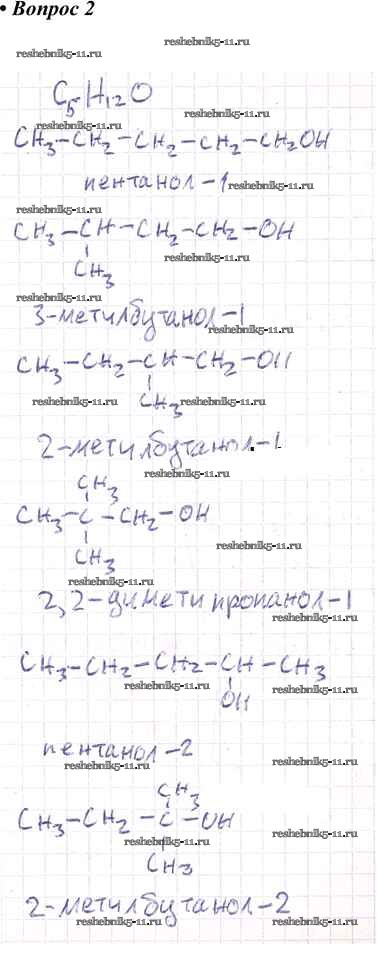 • Вопрос 2
reshebnik5-11.ru
reshebnik5-11.ru
C5H12O
reshebnik5-11.ru
reshebnik5-11.ru
CH3-CH2-CH2-CH2-CH2OH
reshebnik5-11.ru
пентанол-1
reshebnik5-11.ru
reshebnik5-11.ru
CH3-CH-CH2-CH2-OH
reshebnik5-11.ru
CH3
reshebnik5-11.ru
3-метилбутанол-1
reshebnik5-11.ru
CH3-CH2-CH-CH2-OH
reshebnik5-11.ru
CH3
reshebnik5-11.ru
2-метилбутанол-1
reshebnik5-11.ru
CH3
CH3-C-CH2-OH
reshebnik5-11.ru
CH3
reshebnik5-11.ru
2,2-димети пропанол-1
reshebnik5-11.ru
CH3-CH2-CH2-CH-CH3
reshebnik5-11.ru
reshebnik5-11.ru
OH
пентанол-2
reshebnik5-11.ru
reshebnik5-11.ru
CH3
CH3-CH2-C-OH
reshebnik5-11.ru
reshebnik5-11.ru
CH3
reshebnik5-11.ru
2-метилбутанол-2
reshebnik5-11.ru
reshebnik5-11.ru